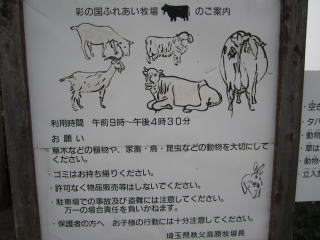 彩の国ふれあい牧場 のご案内
利用時間 午前9時～午後4時30分
お願い
・草木などの植物や、家畜・鳥・昆虫などの動物を大切にして
ください。
・ゴミはお持ち帰りください。
・許可なく物品販売等はしないでください。
・駐車場での事故及び盗難には注意してください。
万一の場合責任を負いかねます。
・保護者の方へ お子様の行動には十分注意してください。
埼玉県秩父高原牧場長
・空き
・タバ
・動物
・草は
・動物
・立入禁